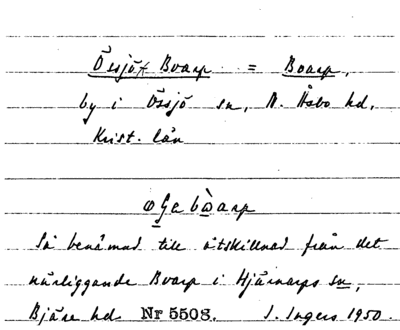 Össjö Boarp = Boarp,
by i Össjö sn, N. Åsbo hd,
Krist. län
Så benämnd till åtskillnad från det
närliggande Boarp i Hjärnarps sn,
Bjäre hd Nr 5508. I. Ingers 1950.